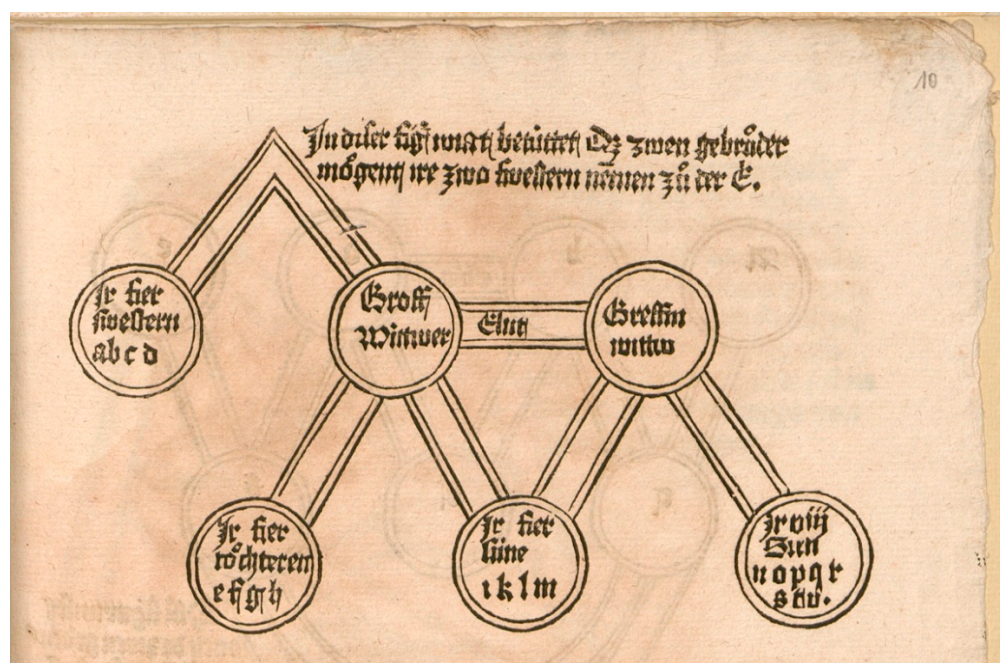 10
In diser figur wirt betüttet Dz zwen gebrůder
mőgent ire zwo swestern nēmen zů der E.
Ir fier
swestern
a b c d
Groff
Wittwer
Elut
Greffin
wittw
Ir fier
tőchteren
e f g h
Ir fier
süne
i k l m
Ir viij
Sun
n o p q r
s t v.